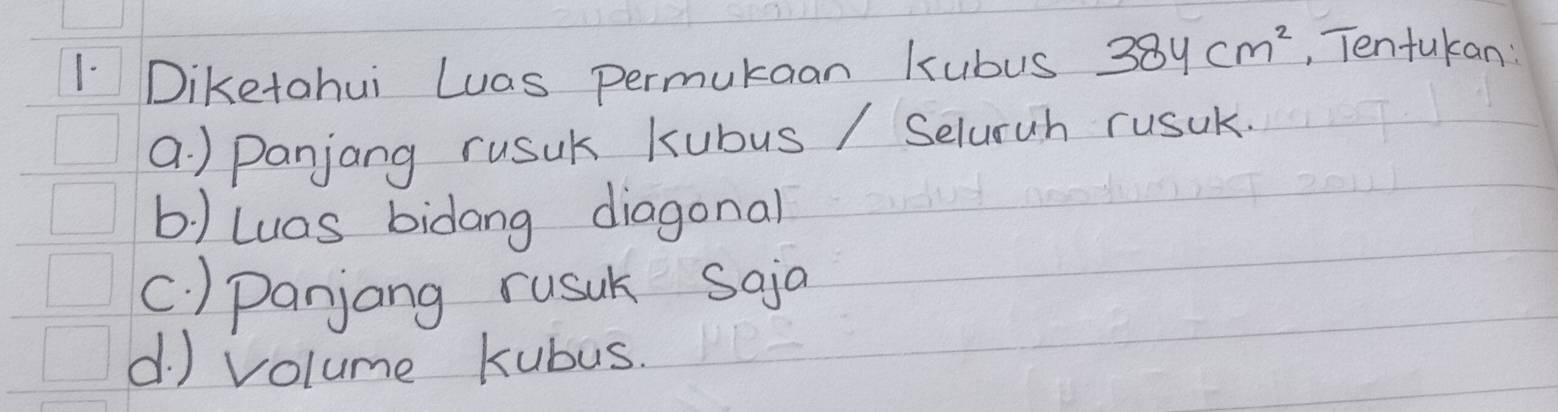 1. Diketahui Luas permukaan kubus 384 cm², Tentukan:
a.) panjang rusuk kubus / Seluruh rusuk.
b.) Luas bidang diagonal
c.) panjang rusuk saja
d.) volume kubus.